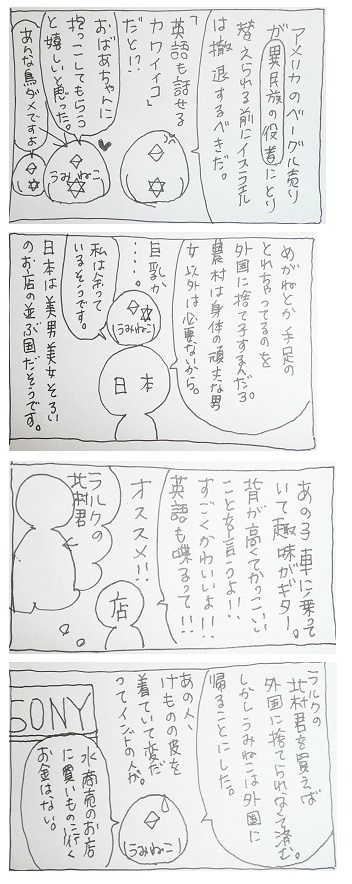 アメリカのベーグル売り
が異民族の役者にとり
替えられる前にイスラエル
は撤退するべきだ。
「英語も話せる
カワイイコ」
だと!?
おばあちゃんに
抱っこしてもらう
と嬉しいと思った。
うみねこ
あんな鳥ダメですよ
めがねとか手足の
とれちゃってるのを
外国に捨て子するんだろ。
農村は身体の頑丈な男
女以外は必要ないから。
巨乳か
……。
うみねこ
私は余って
いるそうです。
日本
日本は美男美女ぞろい
のお店の並ぶ国だそうです。
あの子車に乗って
いて趣味がギター。
背が高くてかっこいい
ことを言うよ!!、
すごくかわいいよ!!
英語も喋るって!!
オススメ!!
店
ラルクの
北村君
ラルクの
北村君を買えば
外国に捨てられなくて済む。
しかしうみねこは外国に
帰ることにした。
あの人、
けものの皮を
着ていて変だ
ってインドの人が。
うみねこ
SONY
水商売のお店
に買いものに行く
お金はない。